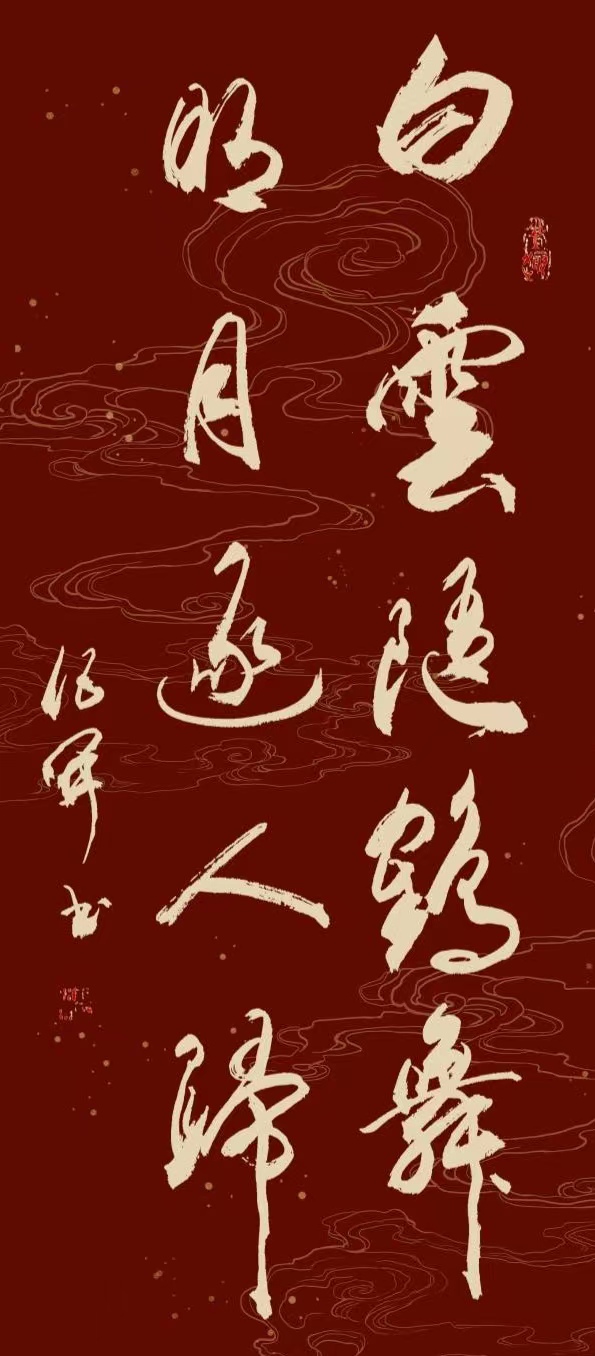 白雲隨鶴舞
明月逐人歸
書